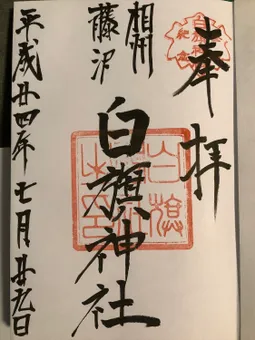 奉拝
相州
藤沢
白旗神社
平成廿四年七月廿九日